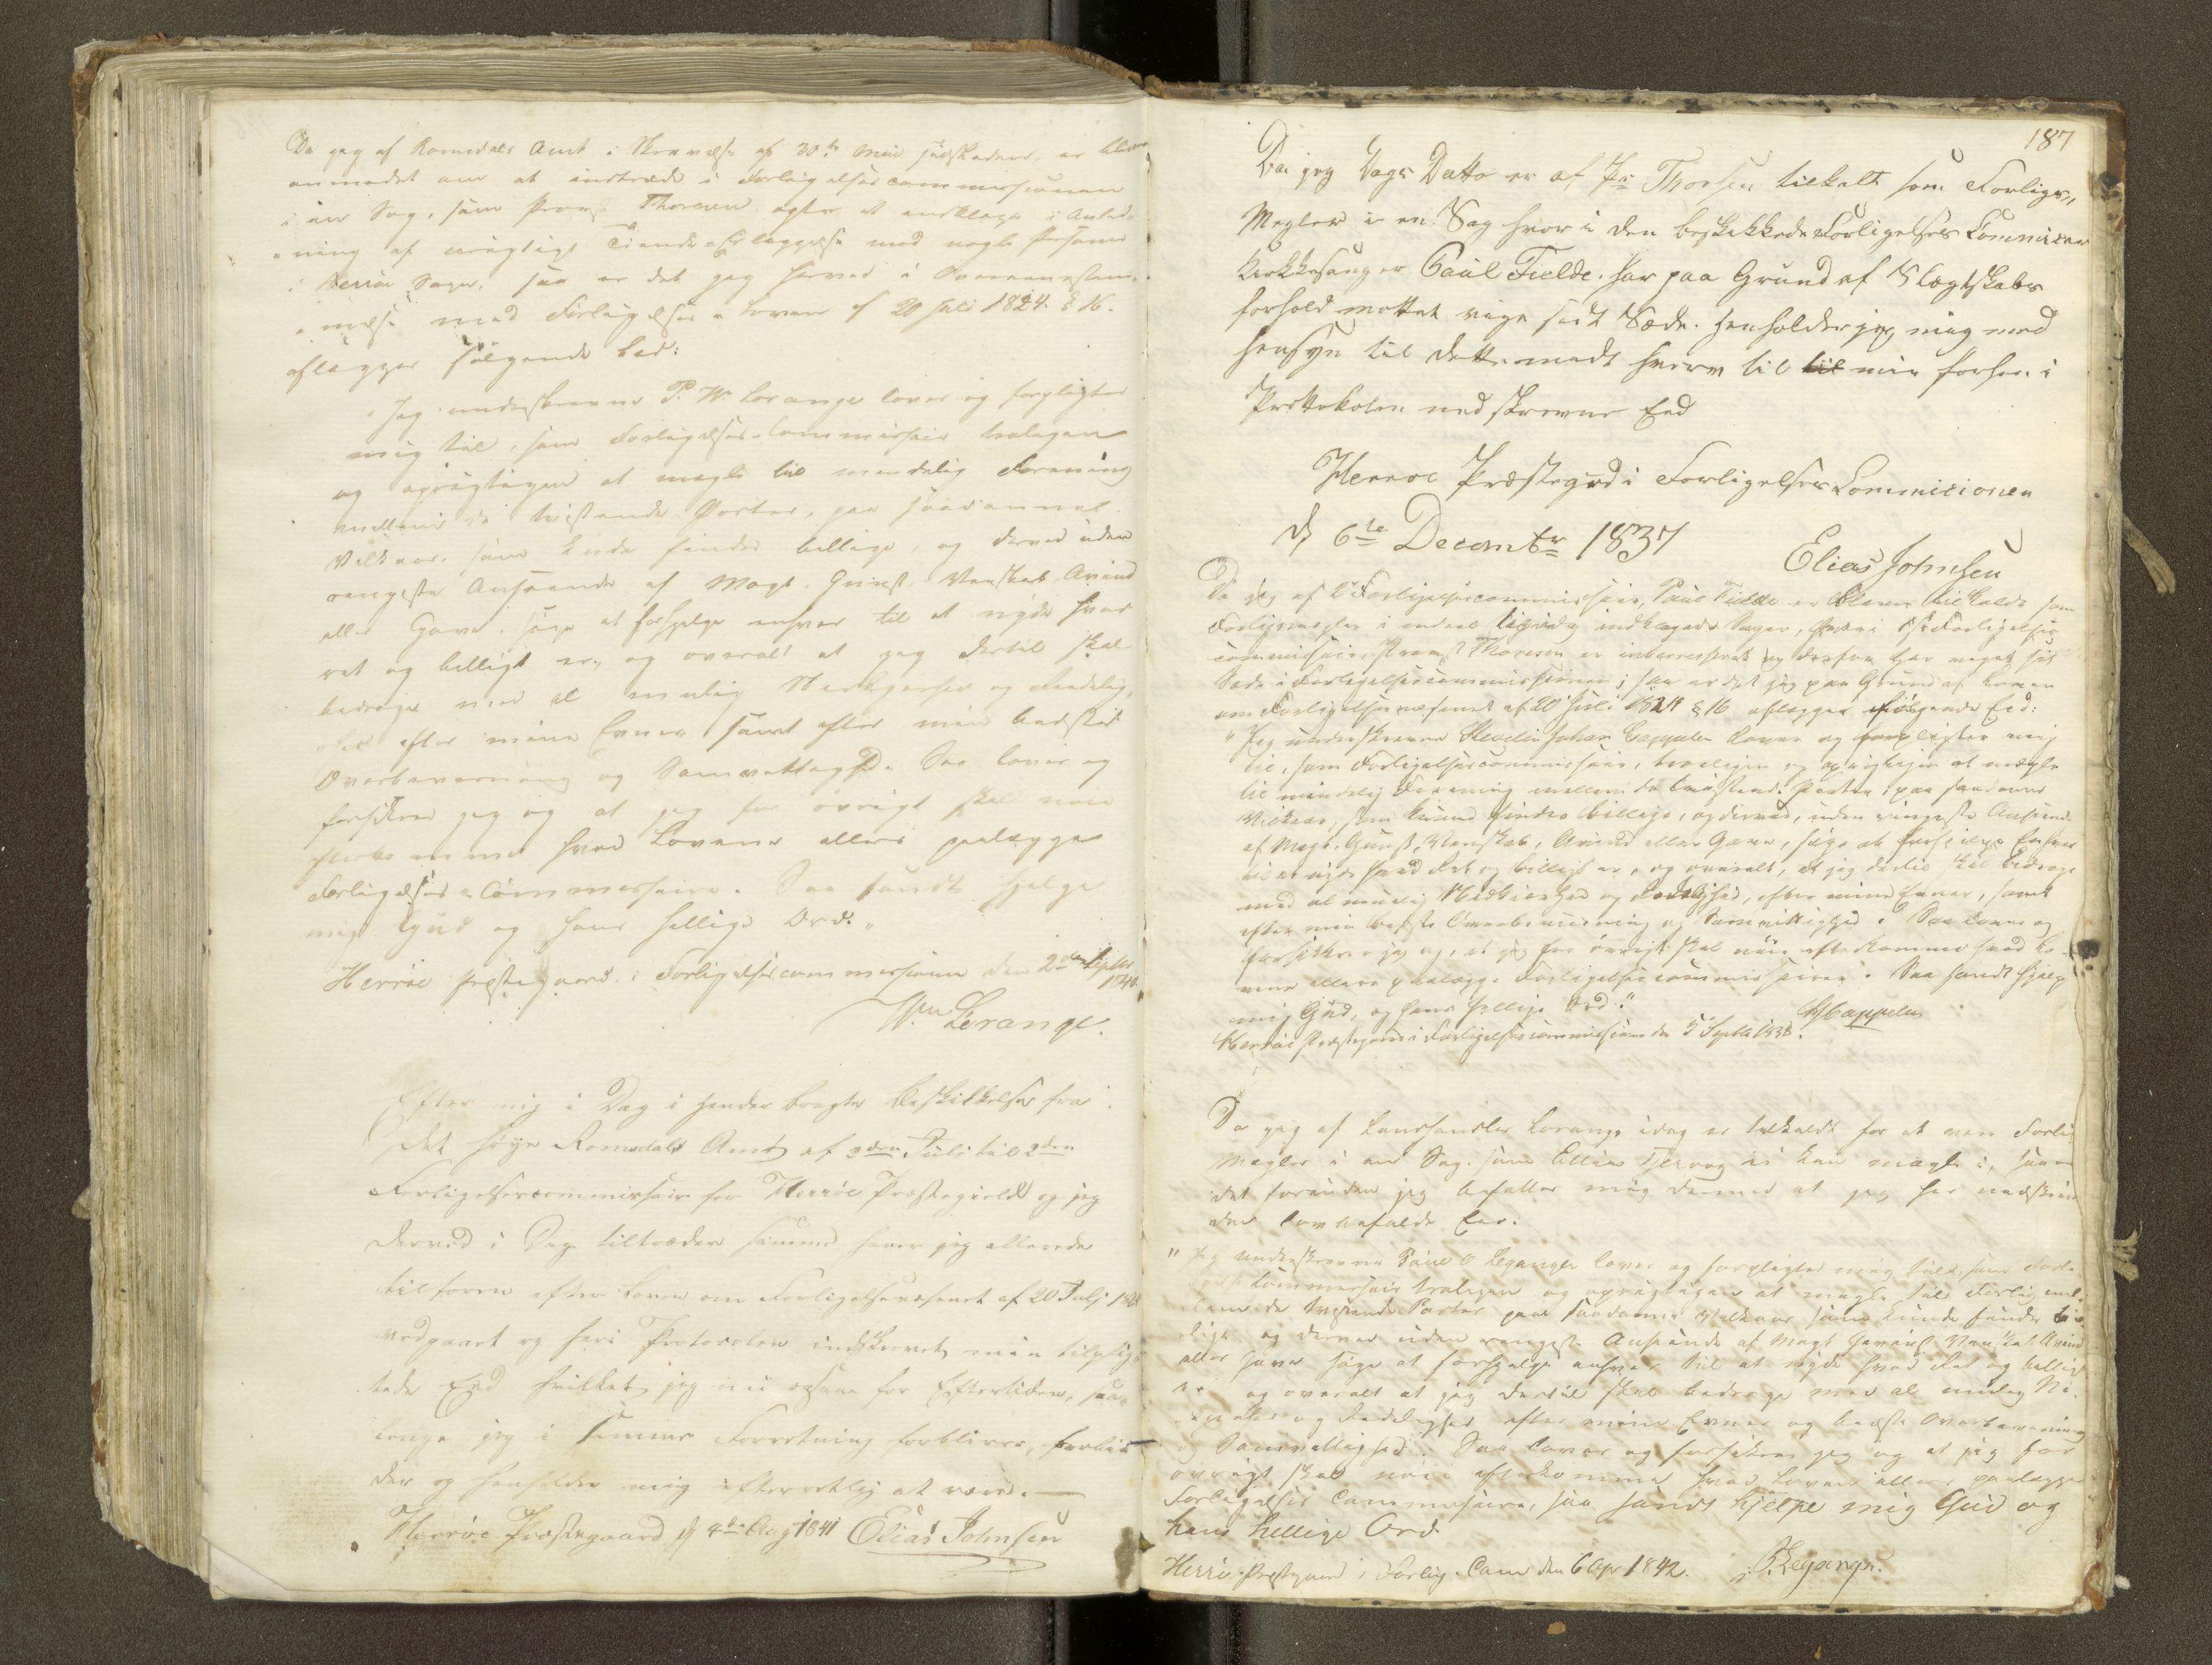 Da jeg af Romsdals Amt i Skrivelse af 30te Mai sidstleden, er bleven
anmodet om at indtræde i Forligelsescommissionen
i en Sag, som Provst Thoresen agter at anklage i Anled-
ning af urigtigt Tiende-Erlæggelse mod nogle Personer
i Herröe Sogn, saa er det jeg herved i Overeensstem-
melse med Forligelses-Loven af 20 Juli 1824 § 16.
aflægger følgende Eed:
"Jeg underskrevne P. W. Lorange lover og forpligter
mig til, som Forligelses-Commissair trolegen
og oprigtigen at mægle til mindelig Forening
mellem de tvistende Parter, paa saadanne
Vilkaar, som kunde findes billige, og derved uden
ringeste Anseende af Magt, Gunst, Venskab, Avind
eller Gave, søge at forhjelpe enhver til at nyde hvad
ret og billigt er, og overalt at jeg dertil skal
bedrage med al mulig Nidkjerhed og Redelig-
hed efter mine Evner samt efter min bedste
Overbeviisning og Samvittighed. Saa lover og
forsikrer jeg og at jeg for øvrigt skal nøie
efterkomme hvad Lovene ellers paalægge
Forligelses-Commissairer. Saa sandt hjelpe
mig Gud og hans hellige Ord."
Herröe Præstegaard i Forligelsescommissionen den 2den Septbr 1840.
Wm Lorange.
Efter mig i Dag i hænder bragte Beskikkelse fra
det høye Romsdals Amt af 3den Juli til 2den
Forligelsescommissair for Herröe Præstegield og jeg
derved i Dag tiltræder samme haver jeg allerede
tilforn efter Loven om Forligelsesvæsenet af 20 Julj 1824
vedgaaet og heri Protocolen indskrevet min tilplig-
tede Eed hvilket jeg nu ogsaa for Eftertiden, saa
længe jeg i samme Forretning forbliver, forbin-
der og henholder mig efterrettlig at være. —
Herröe Præstegaard d 4de Aug 1841 Elias Johnsen
187
Da jeg Dags Datto er af Pr: Thorsen tilkalt som Forligs-
Megler i en Sag hvor i den beskekkede Forligelses Commisær
Kirkesanger Paul Fielde. har paa Grund af Slægtskabs
forhold mottet vige sidt Sæde. henholder jeg mig med
hensyn til dette medt hverv til til min forhen i
Prottokolen nedskrevne Eed
Herroe Præstegrd i Forligelses Commicionen
d 6te Decembr 1837
Elias Johnsen
Da jeg af 2d Forligelsescommissair, Paul Fielde er bleven tilkaldt som
Forligsmegler i endeel tiende indklagede Sager, hvori 1ste Forligelses-
commissair Provst Thoresen er interesseret og derfor har veget sit
Sæde i Forligelsescommissionen; saa er det jeg paa Grund af Loven
om Forligelsesvæsenet af 20 Juli 1824 § 16 aflægger følgende Eed:
"Jeg underskrevne Johan Cappelen lover og forpligter mig
til, som Forligelsescommissair, troeligen og oprigtigen at mægle
til mindelig Forening imellem de tvistende Parter paa saadanne
Vilkaar, som kunne findes billige, og derved, uden ringeste Anseende
af Magt, Gunst, Venskab, Avind eller Gave, søge at forhjelpe Enhver
til at nyde hvad Ret og billigt er, og overalt, at jeg dertil skal bidrage
med al muelig Nidkierhed og Redelighed, efter mine Evner, samt
efter min bedste Overbeviisning og Samvittighed. Saa lover og
forsikkrer jeg og, at jeg for øvrigt skal nøie efterkomme hvad Lo-
vene ellers paalægge Forligelsescommissairer. Saa sandt hjelpe
mig Gud, og hans hellige Ord."
Cappelen
Herröe Præstegaard i Forligelsescommissionen den 5 Septbr 1838.
Da jeg af Landhandler Lorange idag er tilkaldt for at være Forligs
Megler i en Sag, som Elias Tjervog ei kan mægle i, saa er
det foruden jeg befatter mig dermed at jeg her nedskriver
den lovbefalede Eed:
"Jeg underskrevne Paul O Leganger lover og forpligter mig til, som Forli-
gelses Commissair troligen og oprigtigen at mægle til Forlig mel-
lem de tvistende Parter paa saadanne Vilkaar som kunde findes bil-
lige og derved uden ringeste Anseende af Magt Gunst Venskab Avind
eller Gaver søge at forhjelpe enhver til at nyde hvad Ret og billigt
er og overalt at jeg dertil skal bedrage med al mulig Ni-
kjærhed og Redelighed efter mine Evner og bedste Overbeviisning
og Samvittighed. Saa lover og forsikrer jeg og at jeg for
øvrigt skal nøie efterkomme hvad Loven ellers paalægger
Forligelses Commissairer, saa sandt hjelpe mig Gud og
hans hellige Ord.
Herrö Præstegaard i Forlig. Com den 6 Apr 1842. P. Leganger.